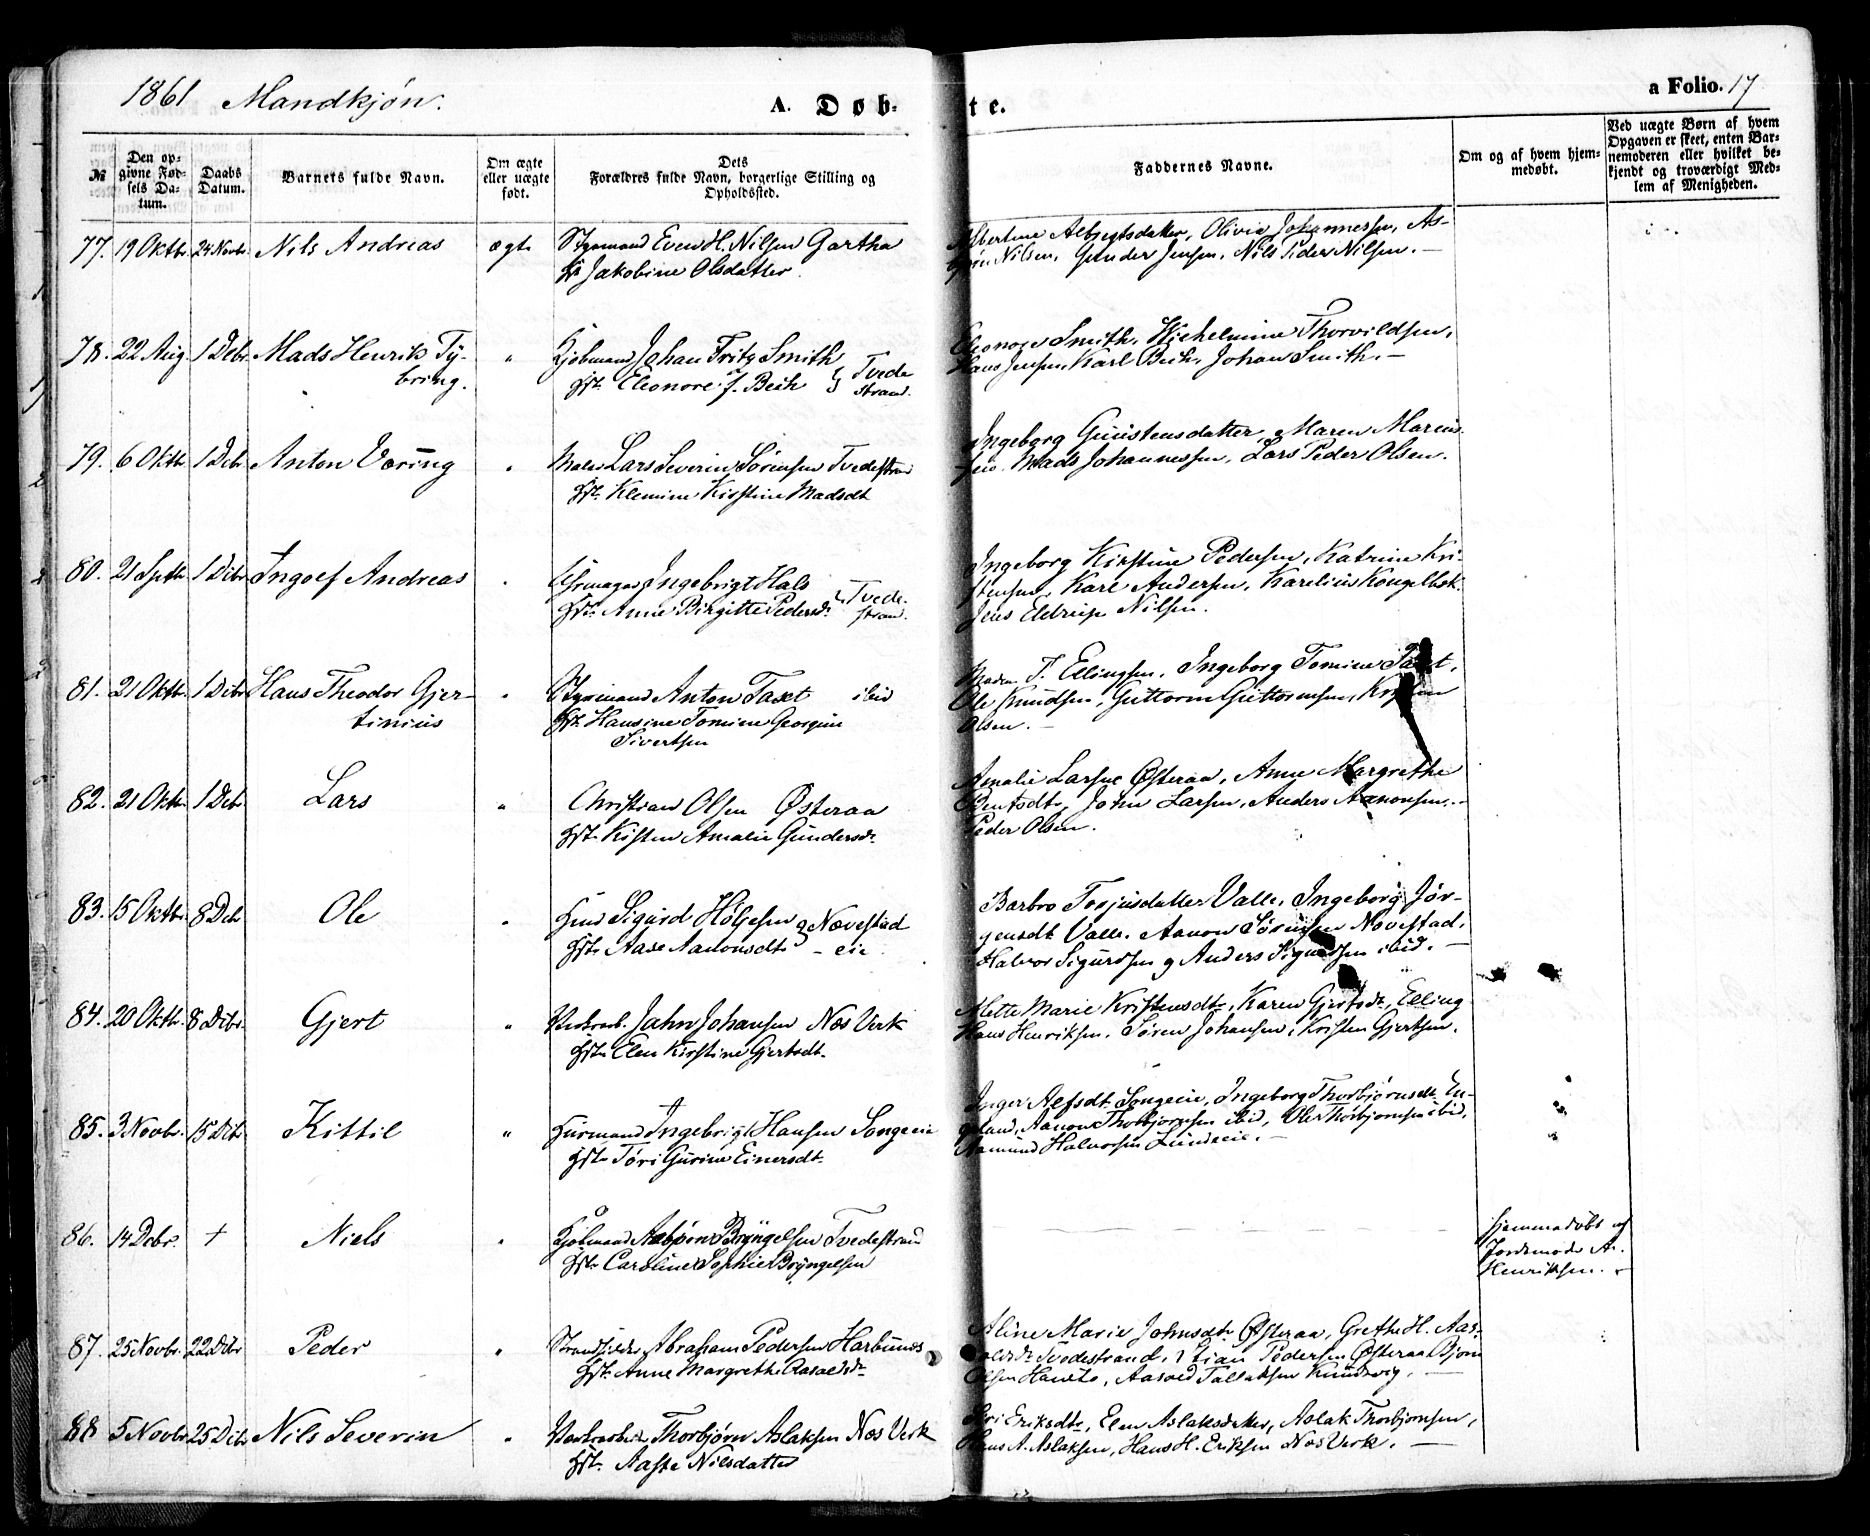 1861 Mandkjøn.
A. Døbte.
a Folio. 17
№
Den opgivne Fødsels Datum.
Daabs Datum.
Barnets fulde Navn.
Om ægte eller uægte født.
Dets Forældres fulde Navn, borgerlige Stilling og Opholdssted.
Faddernes Navne.
Om og af hvem hjemmedøbt.
Ved uægte Børn af hvem Opgaven er skeet, enten Barnemoderen eller hvilket bekjendt og troværdigt Medlem af Menigheden.
77. 19 Oktbr. 24 Novbr. Nils Andreas ægte Styrmand Even H. Nilsen Gartha
Jakobine Olsdatter.
Olivia Johannessen, As-
Nilsen, Gunder Jensen, Nils Peder Nilsen. —
78. 22 Aug 1 Debr Mads Henrik Ty- " Kjøbmand Johan Fritz Smith
bring. Hst. Eleonore f. Bech } Tvede
strand.
Eleonore Smith, Wilhelmine Thorvildsen,
Hans Jensen, Karl Bech, Johan Smith. —
79. 6 Oktbr 1 Debr Anton Væring " Maler Lars Severin Sørensen Tvedestrand
Hst. Klemine Kirstine Madsdt
Ingeborg Guustensdatter, Maren Marius-
sen. Mads Johannessen, Lars Peder Olsen.
80. 21 Sptb 1 Debr Ingolf Andreas " Uhrmager Ingebrigt Hals
Hst. Anne Birgitte Pedersdt. } Tvede-
strand.
Ingeborg Kirstine Pedersen, Katrine Kri-
stensen, Karl Andersen, Karelius Kongelbek
Jens Eldrup Nilsen.
81. 21 Oktbr 1 Debr Hans Theodor Gjer- " Styrmand Anton Taxt ibid
tinius Hst. Hansine Tomine Georgine
Sivertsen
Madm T. Ellingsen, Ingeborg Tomine Taxt,
Ole Knudsen, Guttorm Guttormsen,
Olsen. —
82. 21 Oktr 1 Debr Lars " Christian Olsen Østeraa
Hst. Kisten Amalie Gundersdt.
Amalie Larsne Østeraa, Anne Margrethe
Bentsdtr, John Larsen, Anders Aanonsen,
Peder Olsen.
83. 15 Oktbr. 8 Debr Ole " Huusd Sigurd Holjesen } Nævestad
Hst. Aase Aanonsdtr – eie.
Barbro Torjusdatter Valle, Ingeborg Jør-
gensdt Valle. Aanon Sørensen Nævestad,
Halvor Sigurdsen og Anders Sigurdsen ibid. —
84. 20 Oktbr. 8 Debr. Gjert " Verksarb. Jahn Johansen Næs Verk
Hst. Elen Kirstine Gjertsdt.
Mette Marie Kristensdtr, Karen Gjertsdt, Elling
Hans Henriksen, Søren Johansen, Kristen Gjertsen.
85. 3 Novbr. 15 Debr Kittil " Huusmand Ingebrigt Hansen Songeeie
Hst. Tøri Gurine Einersdt.
Inger Alfsdt. Songeeie, Ingeborg Thorbjørnsdt. En-
geland, Aanon Thorbjørnsen ibid, Ole Thorbjørnsen ibid,
Aamund Halvorsen Lundeeie. —
86. 14 Debr. + Niels " Kjøbmand Asbjørn Bryngelsen Tvedestrand
Hst. Caroline Sophie Bryngelsen
hjemmedøbt af
Jordemoder A.
Henriksen.
87. 25 Novbr. 22 Debr Peder " Strandsidder Abraham Pedersen Harbunes
Hst. Anne Margrethe Aasvaldsdt
Aline Marie Johnsdt. Østeraa, Grethe H. Aas-
valdsdt Tvedestrand, Stian Pedersen Østeraa, Bjørn
Olsen, Aasvold Tallaksen. —
88 5 Novbr 25 Debr Nils Severin " Verksarbeider Thorbjørn Aslaksen Næs Verk
Hst. Aaste Nilsdatter
Siri Eriksdtr, Elen Aslaksdatter, Aslak Thorbjørnsen,
Hans A. Aslaksen, Hans H. Eriksen Næs Verk. —